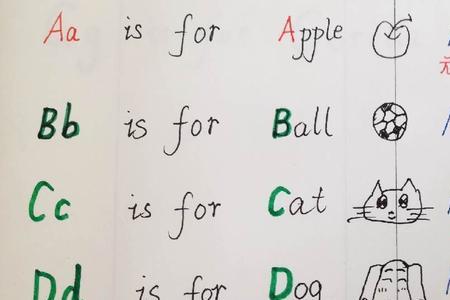 Aa is for Apple
Bb is for Ball
Cc is for Cat
Dd is for Dog